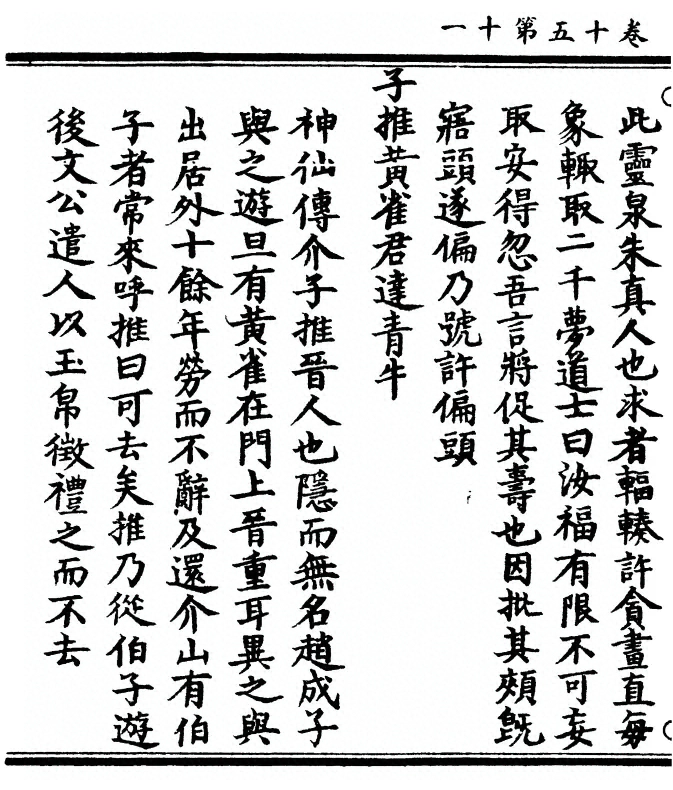 卷十五第十一
此靈泉朱真人也求者輻輳許貪畫直每
象輒取二千夢道士曰汝福有限不可妄
取安得忽吾言將促其壽也因批其頰既
寤頭遂偏乃號許偏頭
子推黃雀君達青牛
神仙傳介子推晉人也隱而無名趙成子
與之遊旦有黃雀在門上晉重耳異之與
出居外十餘年勞而不辭及還介山有伯
子者常來呼推曰可去矣推乃從伯子遊
後文公遣人以玉帛徵禮之而不去